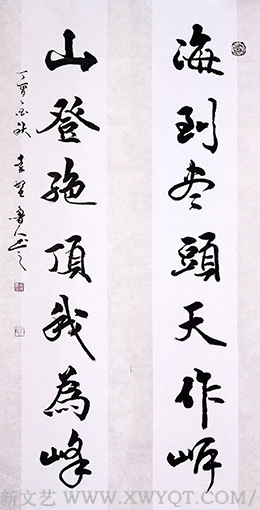 海到尽頭天作岸
山登絶頂我為峰
新文艺 WWW.XWYQT.COM